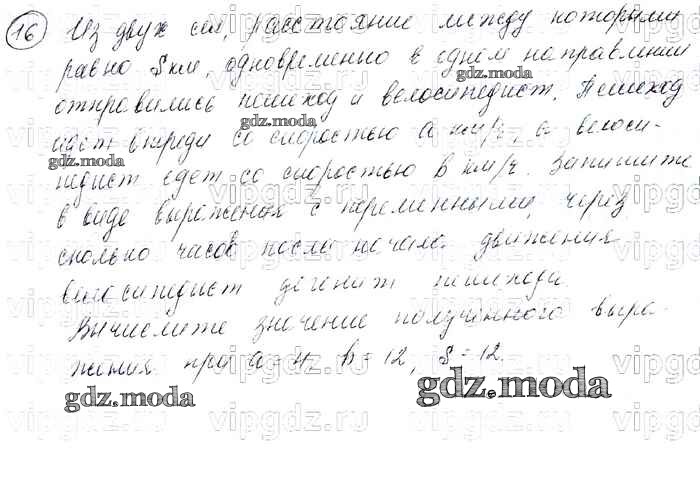 16 Из двух сел, расстояние между которыми
равно S км, одновременно в одном направлении
отправились пешеход и велосипедист. Пешеход
идет впереди со скоростью a км/ч, а велоси-
педист едет со скоростью b км/ч. Запишите
в виде выражения с переменными, через
сколько часов после начала движения
велосипедист догонит пешехода.
Вычислите значение полученного выра-
жения при a = 4 b = 12, S = 12.
gdz.moda
gdz.moda
gdz.moda
gdz.moda
gdz.moda
vipgdz.ru